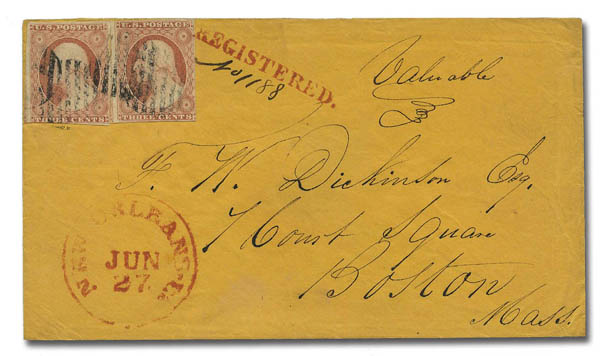 U.S. POSTAGE U.S. POSTAGE
THREE CENTS THREE CENTS
REGISTERED.
No 1188
Valuable
F. W. Dickinson Esq.
Court Square
Boston
Mass.
NEW ORLEANS LA.
JUN
27